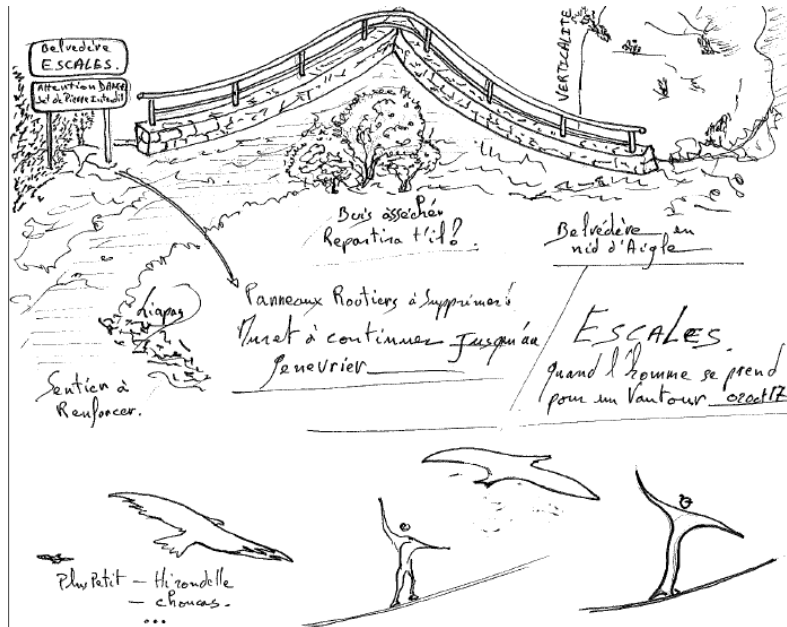 Belvédère
ESCALES.
Attention DANGER
Jet de Pierre Interdit
VERTICALITE
Buis asséché
Repartira t'il?
Belvédère en
nid d'Aigle
Panneaux Routiers à Supprimer!
Muret à continuer Jusqu'au
Genevrier
Liapas
Sentier à
Renforcer.
ESCALES.
quand l'homme se prend
pour un Vautour 02oct17
Plus Petit - Hirondelle
- choucas.
...